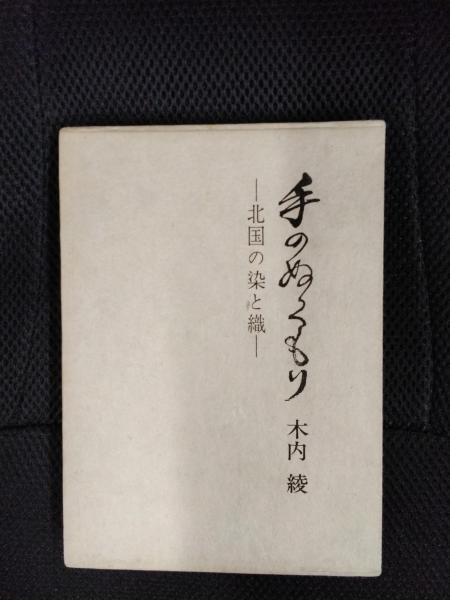 手のぬくもり
木内 綾
―北国の染と織―